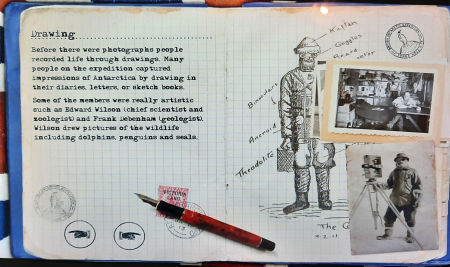 Drawing
Before there were photographs people
recorded life through drawings. Many
people on the expedition captured
impressions of Antarctica by drawing in
their diaries, letters, or sketch books.
Some of the members were really artistic
such as Edward Wilson (chief scientist and
zoologist) and Frank Debenham (geologist).
Wilson drew pictures of the wildlife
including dolphins, penguins and seals.
VICTORIA
LAND
Goggles
Beard
Binoculars
Aneroid
Theodolite
The G